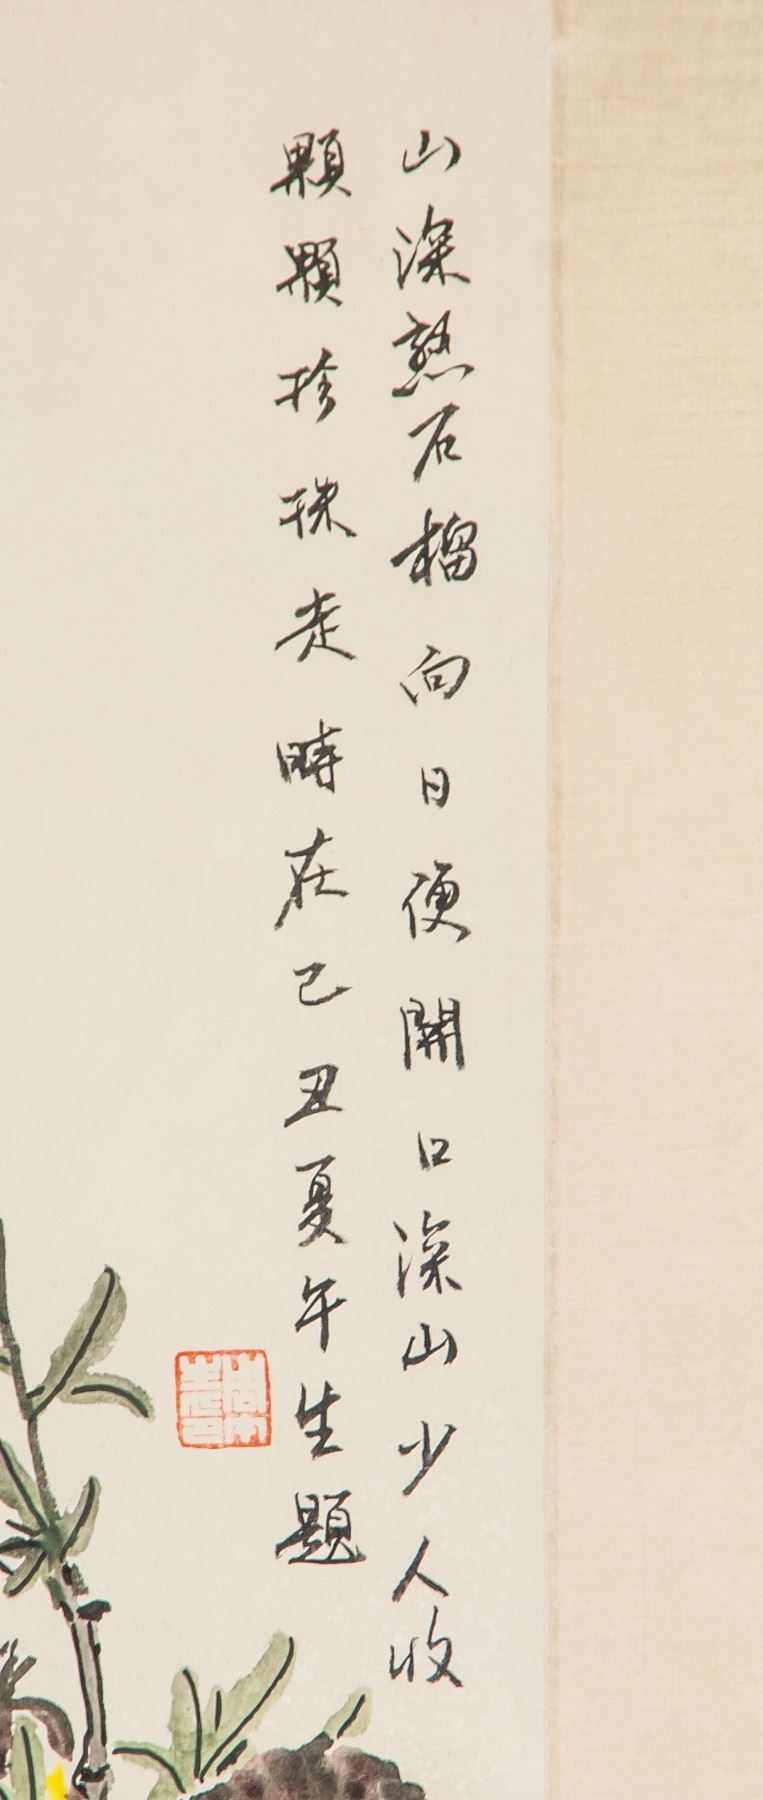 山深熟石榴向日便開口深山少人收
顆顆拾珠走時在己丑夏午生題